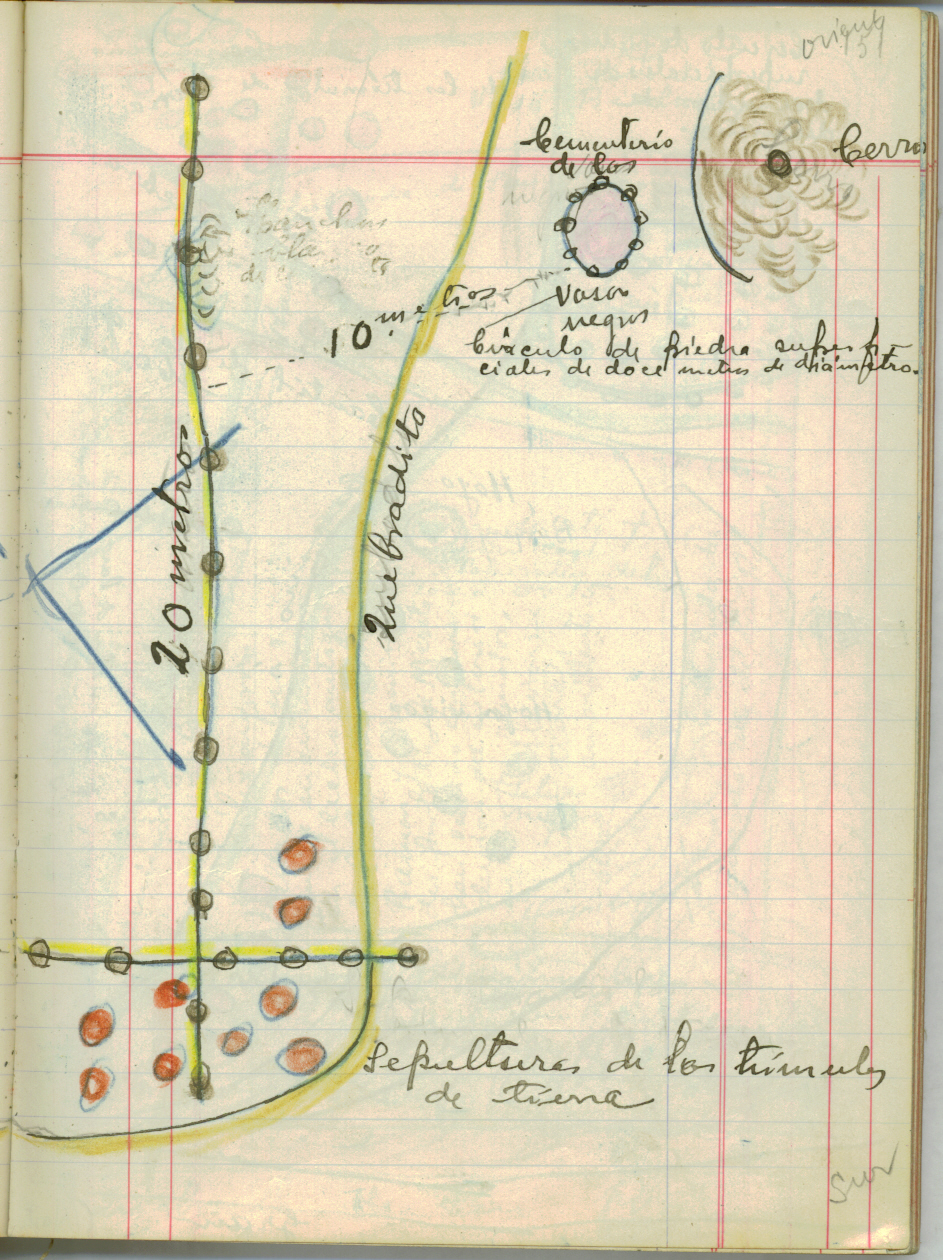 orient
151
Cementerio
de los
Vasos
negros
Cerro
10 metros
Circulo de piedra superfi
ciales de doce metros de diámetro.
20 metros
Quebradita
Sepulturas de los túmulos
de tierra
Sur